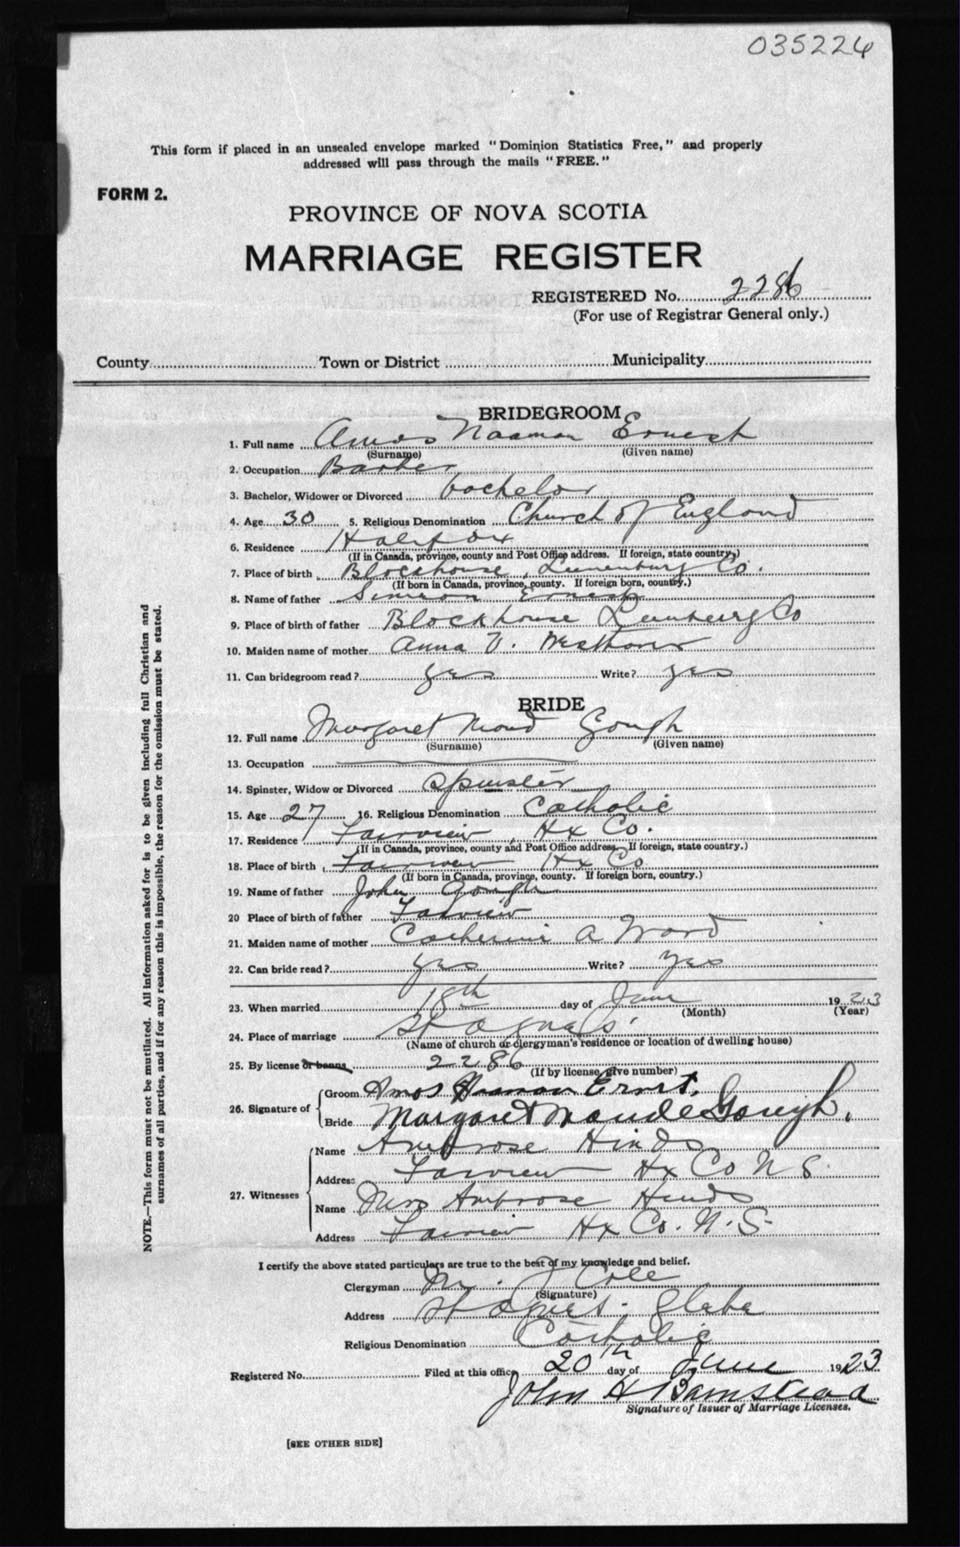 035224
This form if placed in an unsealed envelope marked "Dominion Statistics Free," and properly
addressed will pass through the mails "FREE."
FORM 2.
PROVINCE OF NOVA SCOTIA
MARRIAGE REGISTER
REGISTERED No. 2286
(For use of Registrar General only.)
County Town or District Municipality
BRIDEGROOM
1. Full name Amos Naaman Ernest
(Surname) (Given name)
2. Occupation
3. Bachelor, Widower or Divorced bachelor
4. Age 30 5. Religious Denomination Church of England
6. Residence Halifax
(If in Canada, province, county and Post Office address. If foreign, state country.)
7. Place of birth Blockhouse, Lunenburg Co.
(If born in Canada, province, county. If foreign born, country.)
8. Name of father Simeon Ernest
9. Place of birth of father Blockhouse Lunburg Co
10. Maiden name of mother Anna V.
11. Can bridegroom read? yes Write? yes
BRIDE
12. Full name Margaret Maud Gough
(Surname) (Given name)
13. Occupation
14. Spinster, Widow or Divorced Spinster
15. Age 27 16. Religious Denomination Catholic
17. Residence Fairview, Hx Co.
(If in Canada, province, county and Post Office address. If foreign, state country.)
18. Place of birth Fairview Hx Co
(If born in Canada, province, county. If foreign born, country.)
19. Name of father John Gough
20 Place of birth of father Fairview
21. Maiden name of mother Catherine A Ward
22. Can bride read? yes Write? yes
23. When married 18th day of June 1923
(Month) (Year)
24. Place of marriage St Agnes'
(Name of church or clergyman's residence or location of dwelling house)
25. By license or banns 2286
(If by license, give number)
26. Signature of Groom Amos Naaman Ernst.
Bride Margaret Maude Gough.
27. Witnesses Name Ambrose Hinds
Address Fairview Hx Co N S.
Name Mrs Ambrose Hinds
Address Fairview Hx Co. N. S.
I certify the above stated particulars are true to the best of my knowledge and belief.
Clergyman J Cole
(Signature)
Address St Agnes. Glebe
Religious Denomination Catholic
Registered No. Filed at this office 20th day of June 1923
John H Barnstead
Signature of Issuer of Marriage Licenses.
[SEE OTHER SIDE]
NOTE.—This form must not be mutilated. All information asked for is to be given including full Christian and
surnames of all parties, and if for any reason this is impossible, the reason for the omission must be stated.